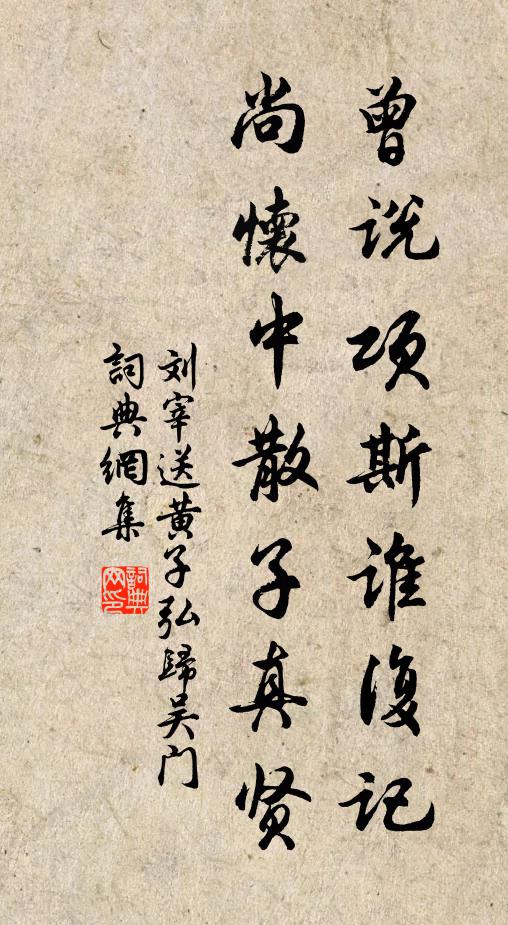 曾说项斯谁復记
尚懷中散子真贤
刘宰送黄子弘歸吴门
詞典網集
詞典网印